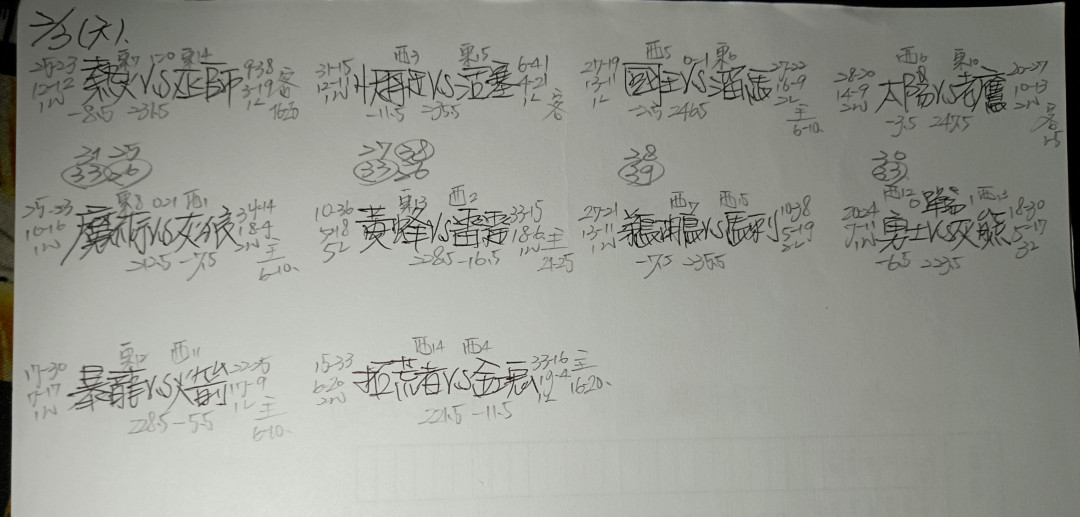 2/3(天).
25-23 東7 1-0 東14 9-38 客
12-12 熱火VS巫師 3-19
1W -8.5 231.5 1L 16-20
31-15 西3 東15 6-41
快艇VS活塞 4-21
1W -11.5 235.5 1L 客
27-19 西5 0-1 東6 27-22
13-11 國王VS溜馬 16-9
1L -2.5 246.5 2L 主 6-10.
28-20 西6 東10 20-27
14-9 太陽VS老鷹 10-13
2W -3.5 247.5 2W 客
24 25
33 26
27 28
33 26
28
39
30
33
25-23 東8 0-1 西1 34-14
10-16 魔術VS灰狼 18-4
1W 212.5 -7.5 2W 主 6-10.
10-36 東13 西2 33-15
5-18 黃蜂VS雷霆 18-6 主
5L 228.5 -16.5 1W 21-25
27-21 西7 西15 10-38
13-11 鵜鶘VS馬刺 5-19
1W -7.5 235.5 2L
20-24 西12 西13 18-30
7-11 勇士VS灰熊 5-17
1W -6.5 223.5 3L
17-30 東12 西11 22-25
7-17 暴龍VS火箭 17-9
1W 228.5 -5.5 1L 主 6-10.
15-33 西14 西4 33-16 主
6-20 拓荒者VS金塊 19-4 16-20.
2W 221.5 -11.5 1L